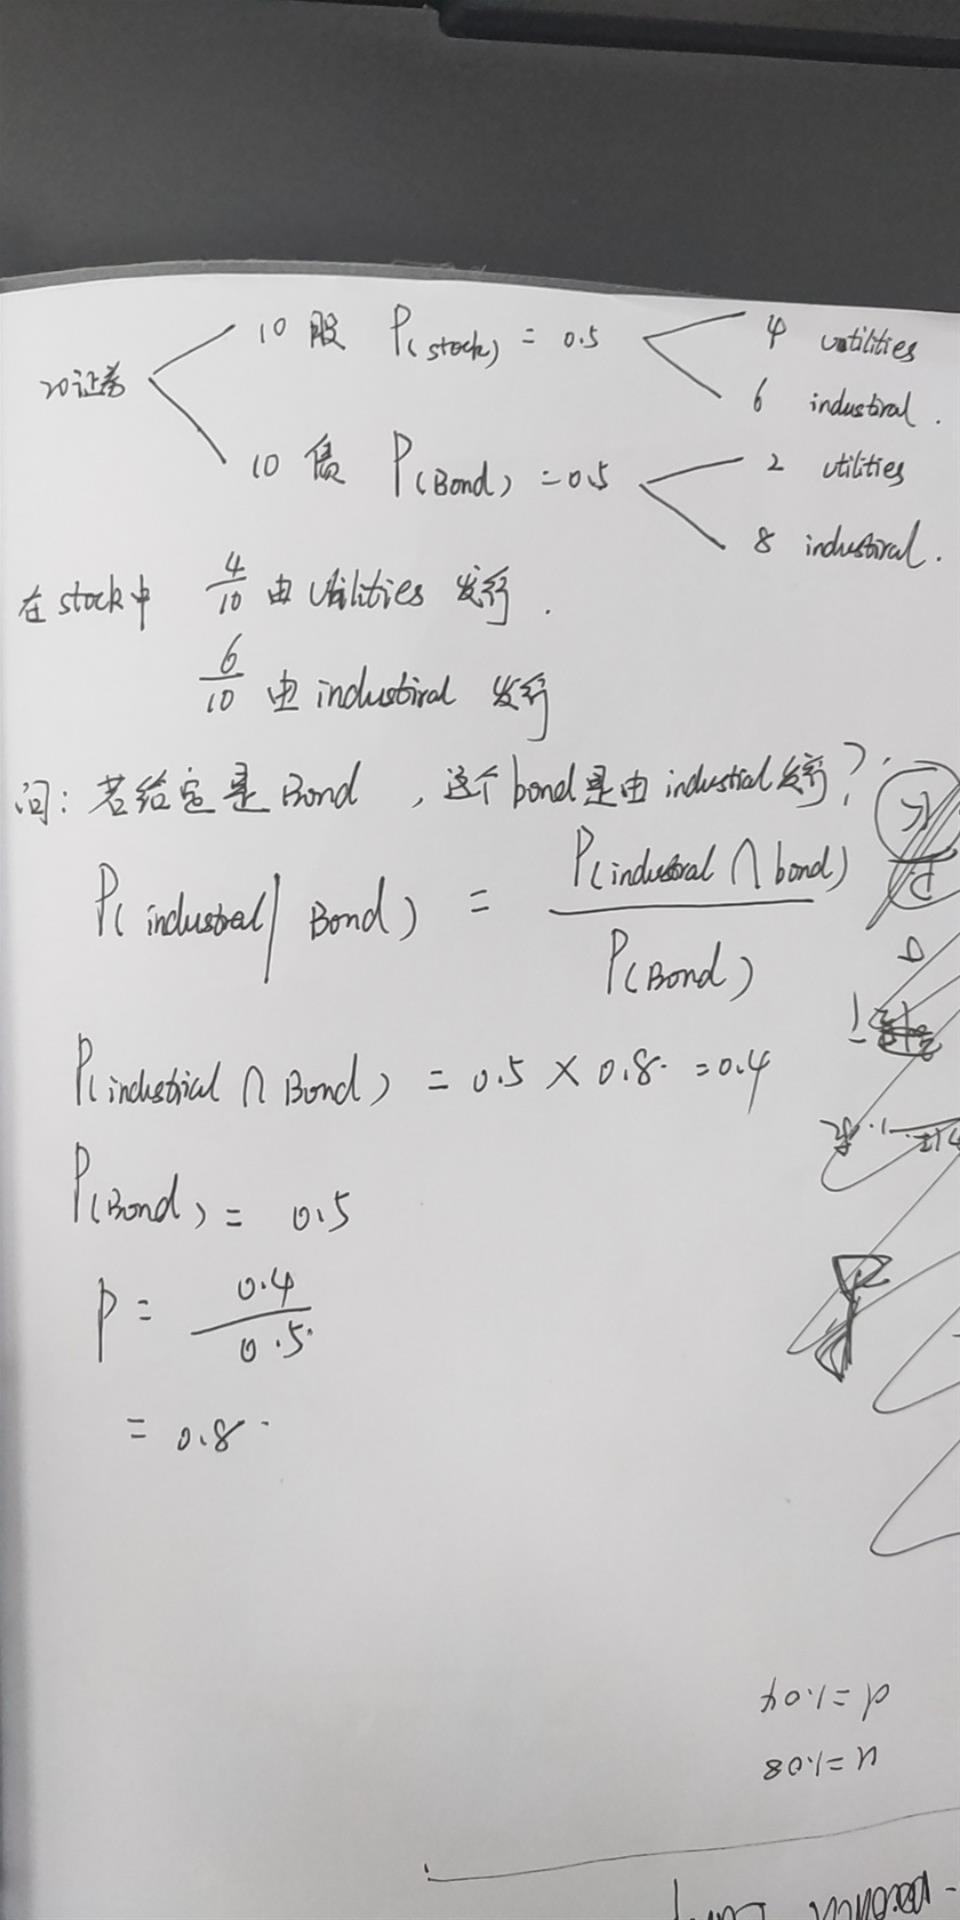 10 股 P(stock) = 0.5
4 utilities
20证券
6 industiral.
10 债 P(Bond) = 0.5
2 utilities
8 industiral.
在stock中 4/10 由 Utilities 发行.
6/10 由 industiral 发行
问: 若给定是 Bond , 这个 bond是由 industrial发行?
P( industral | Bond ) = P(industral ∩ bond) / P(Bond)
P(industrial ∩ Bond) = 0.5 × 0.8. = 0.4
P(Bond) = 0.5
P = 0.4 / 0.5.
= 0.8.
u=1.08
d=1.04